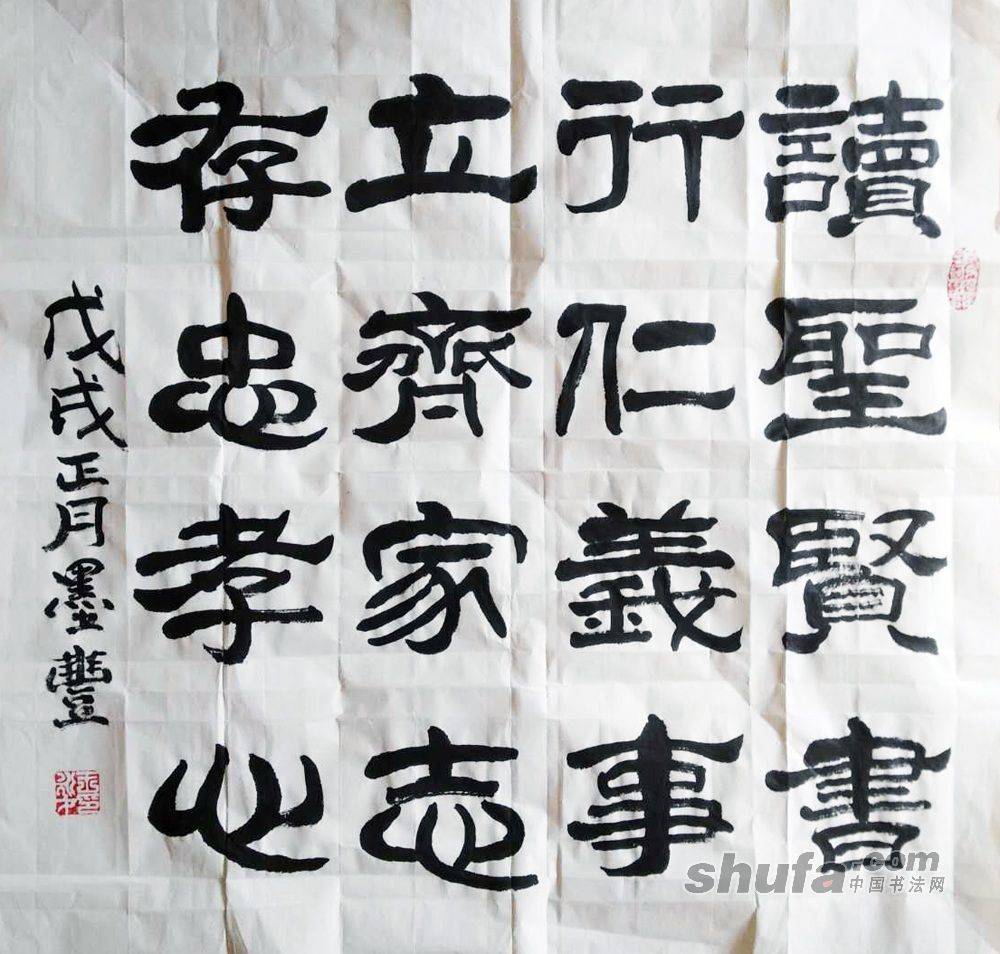 讀聖賢書
行仁義事
立齊家志
存忠孝心
戊戌正月墨豐
shufa.com
中国书法网